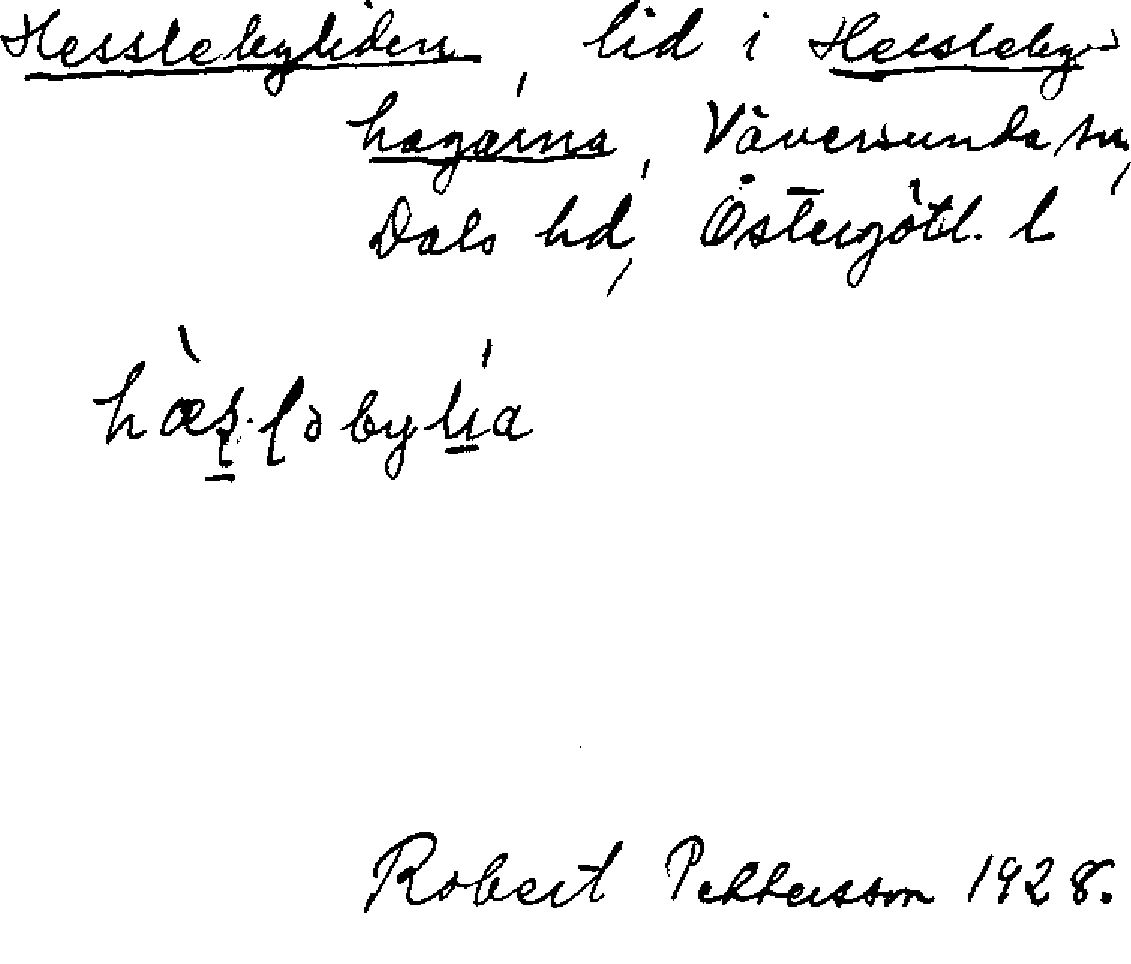 Hesslebyliden, lid i Hessleby-
hagarna, Väversunda sn,
Dals hd, Östergötl. l
Robert Pettersson 1928.